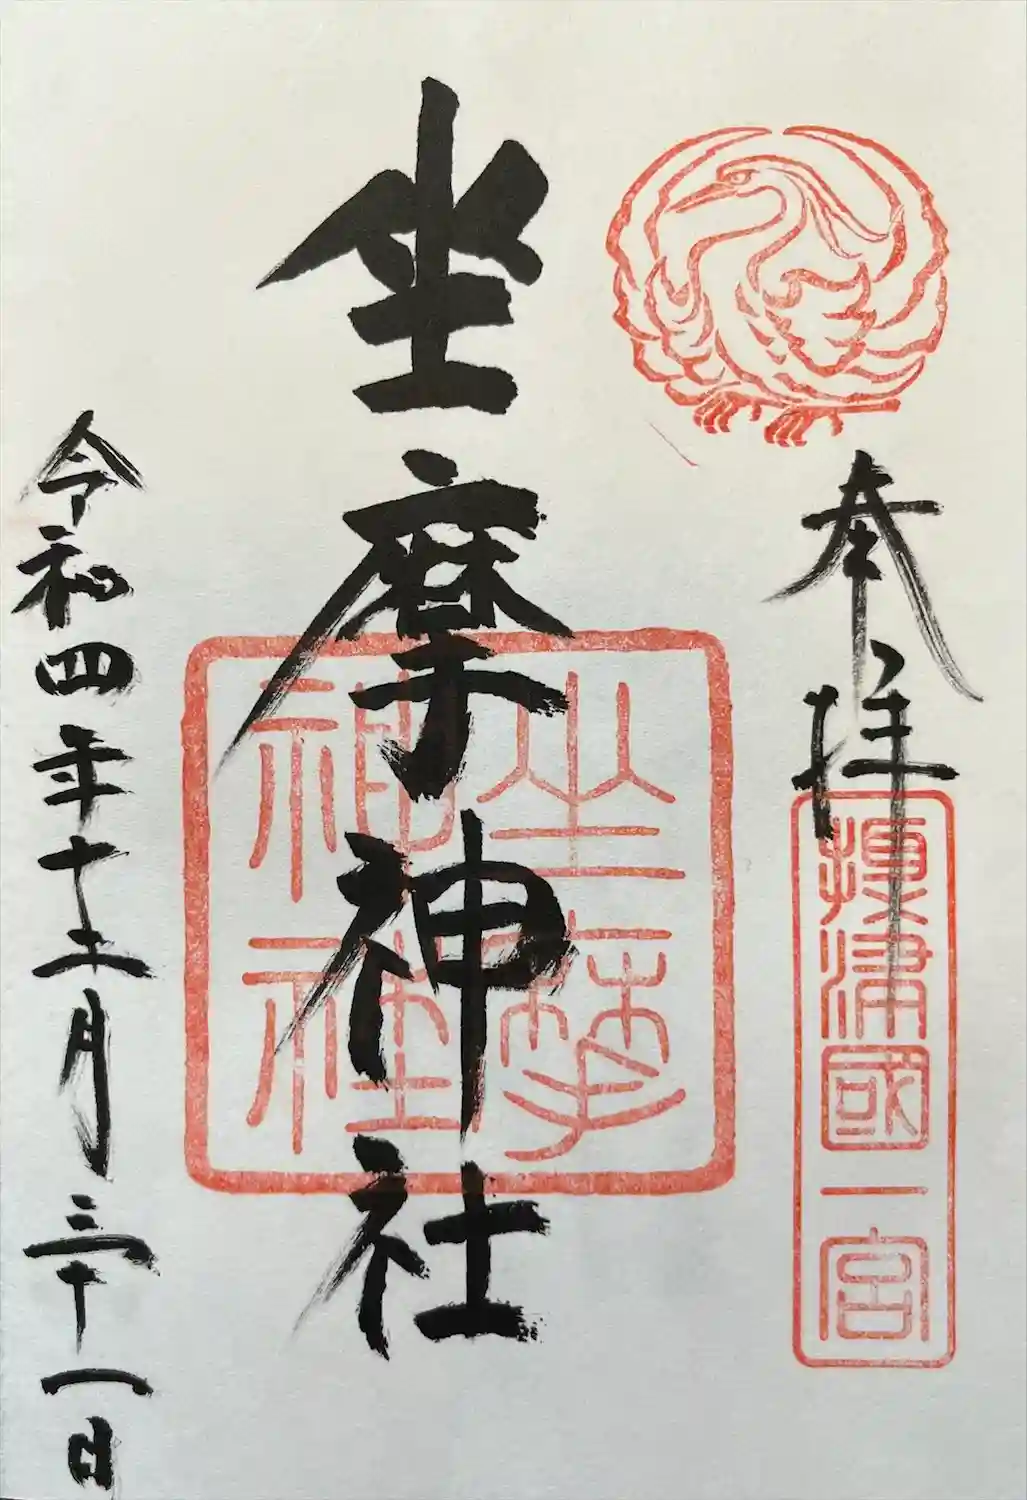 奉拝
攝津國一宮
坐摩神社
坐摩
神社
令和四年十二月三十一日